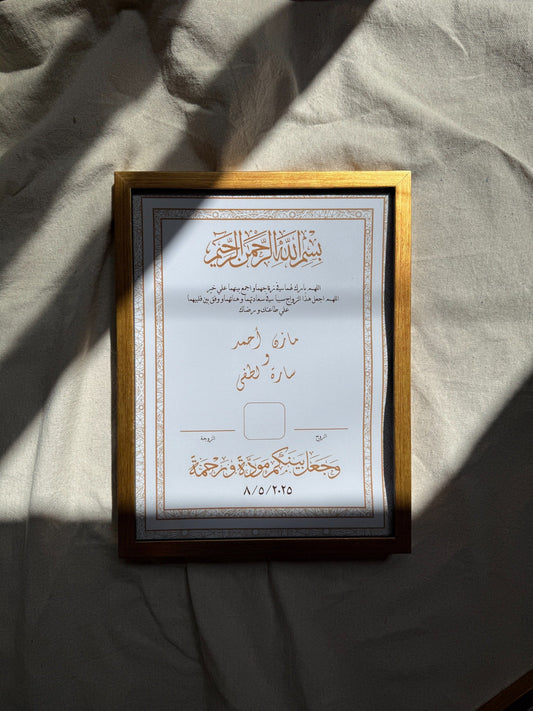 بسم الله الرحمن الرحيم
اللهم بارك لهما في زواجهما واجمع بينهما على خير
اللهم اجعل هذا الزواج سببا في سعادتهما وهنائهما ووفق بين قلبيهما
على طاعتك ورضاك
مازن أحمد
و
سارة لطفى
الزوج
الزوجة
وجعل بينكم مودة ورحمة
٨/٥/٢٠٢٥